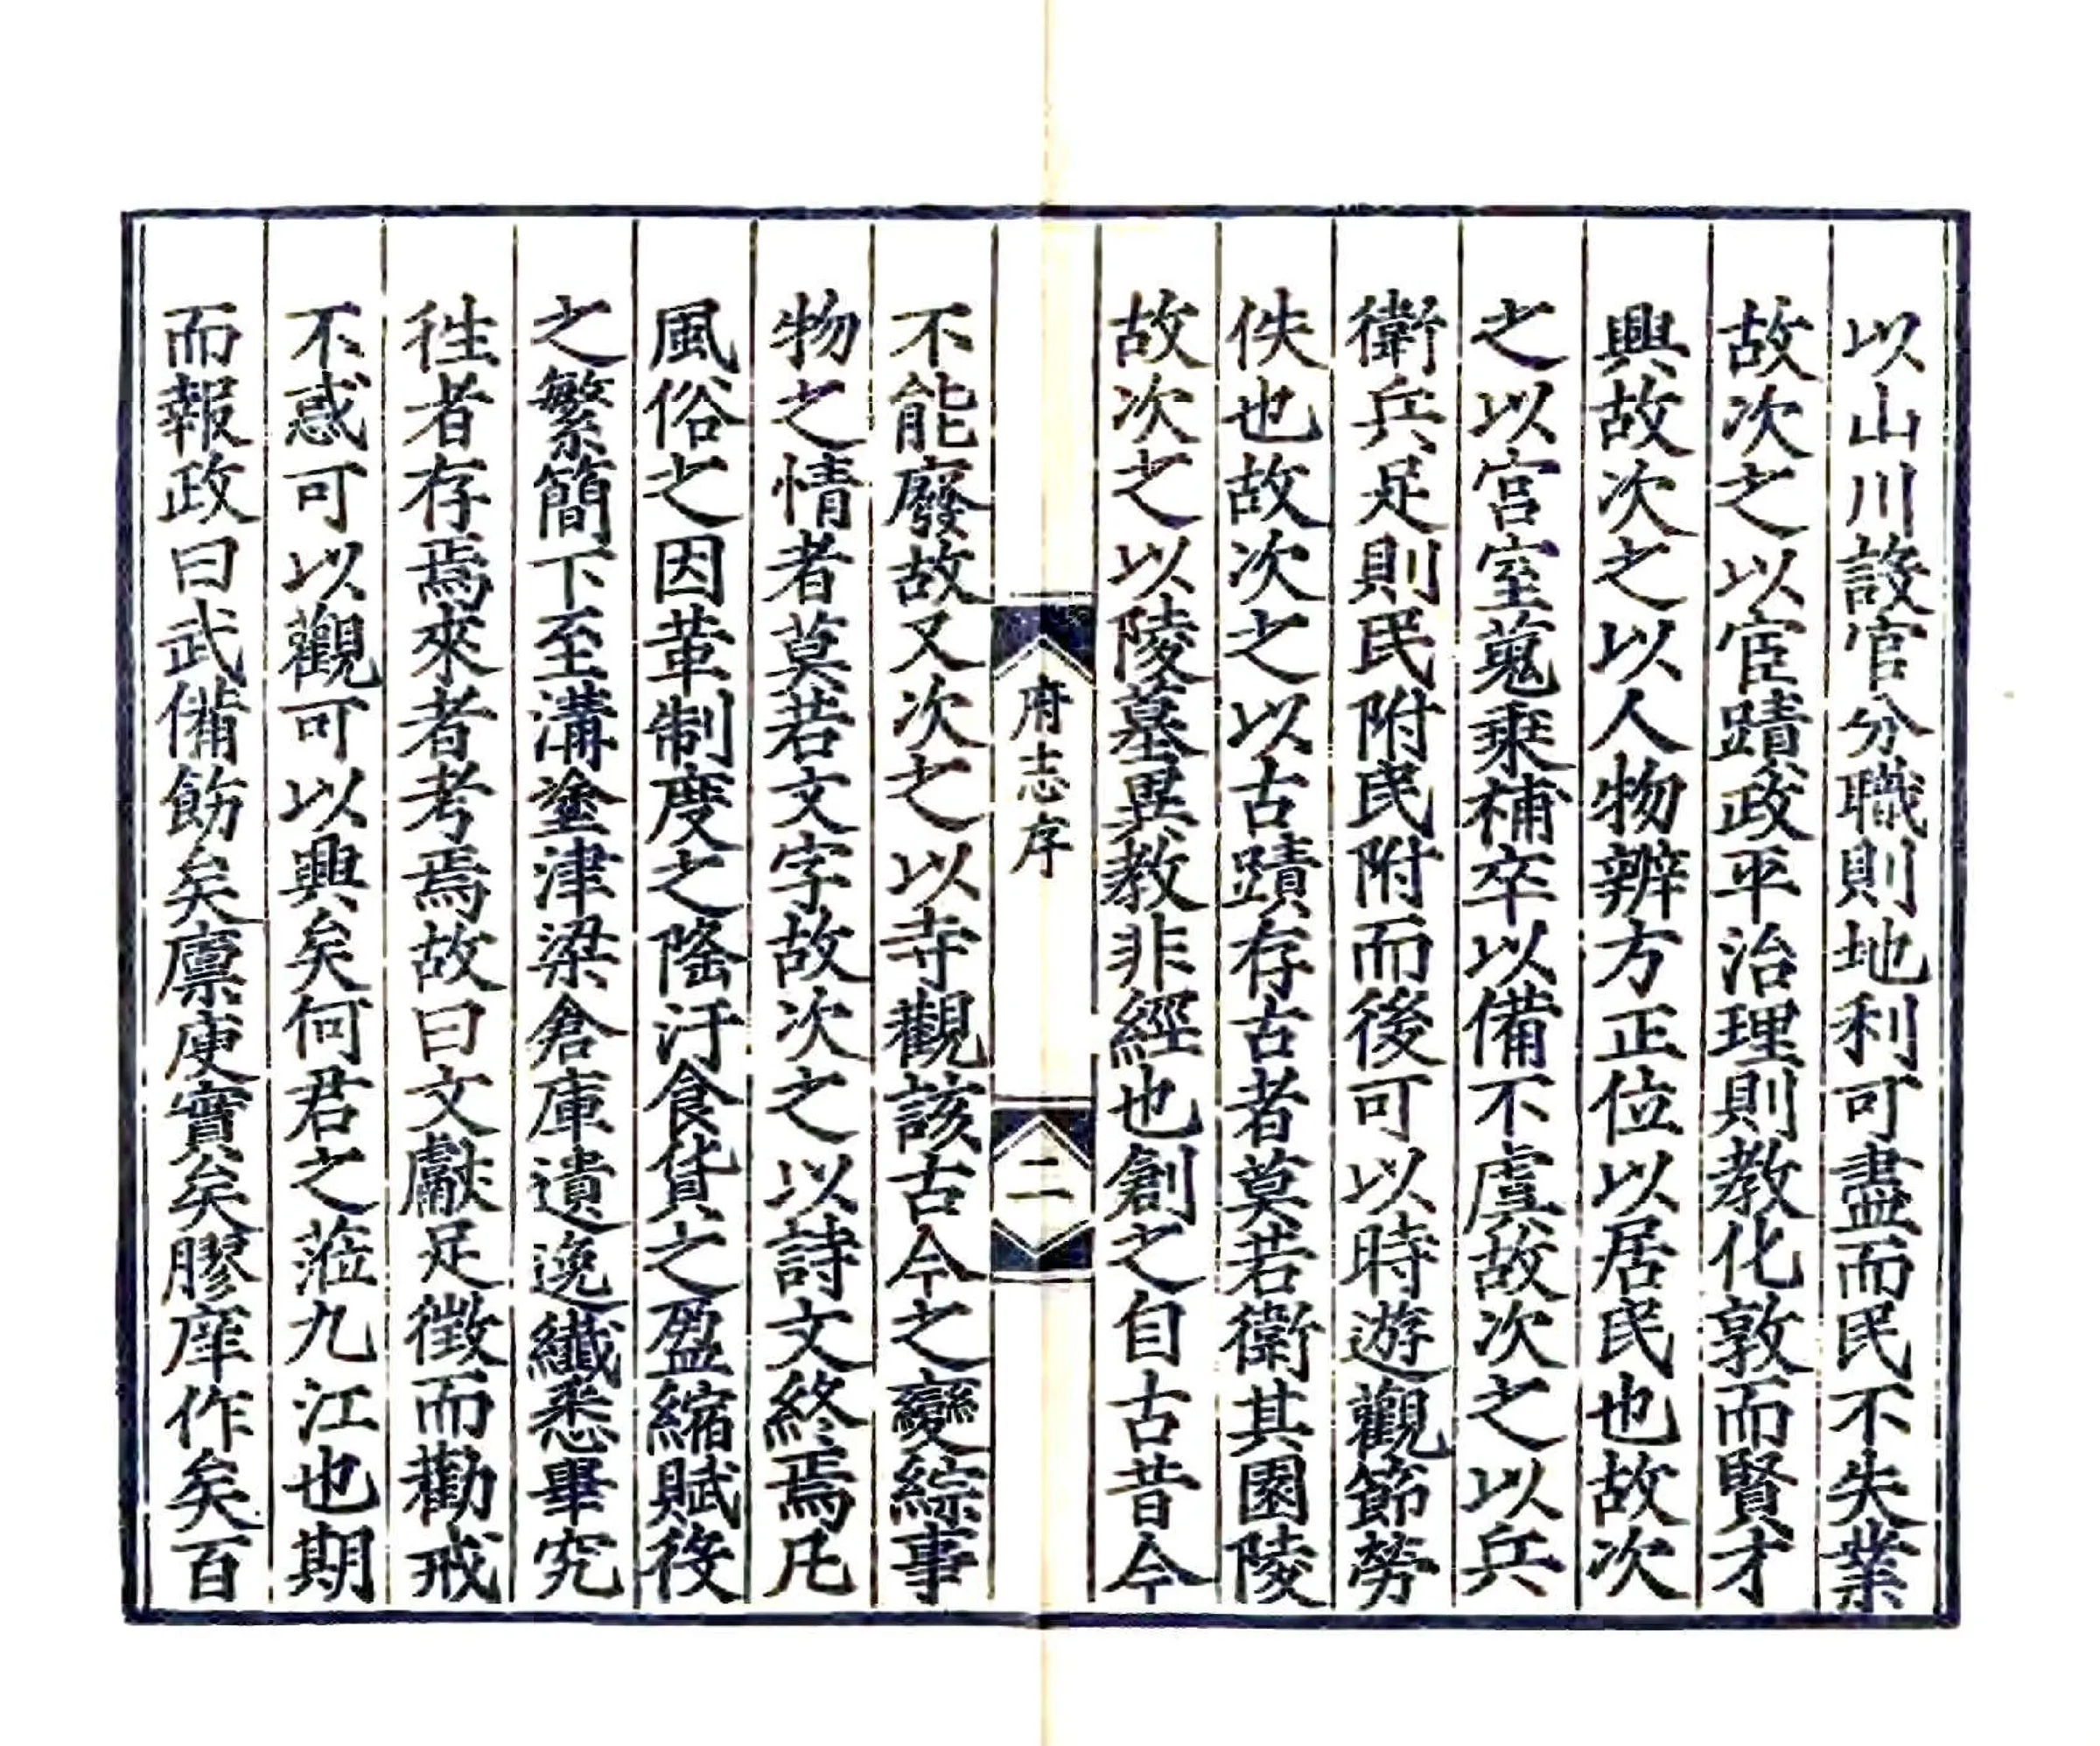 以山川設官分職則地利可盡而民不失業
故次之以宦蹟政平治理則教化敦而賢才
興故次之以人物辨方正位以居民也故次
之以宮室蒐乘補卒以備不虞故次之以兵
衛兵足則民附民附而後可以時遊觀節勞
佚也故次之以古蹟存古者莫若衛其園陵
故次之以陵墓異教非經也創之自古昔今
府志序
二
不能廢故又次之以寺觀該古今之變綜事
物之情者莫若文字故次之以詩文終焉凡
風俗之因革制度之隆汙食貨之盈縮賦役
之繁簡下至溝塗津梁倉庫遺逸纖悉畢究
徃者存焉來者考焉故曰文獻足徵而勸戒
不惑可以觀可以興矣何君之蒞九江也期
而報政曰武備飭矣廩庾實矣膠庠作矣百